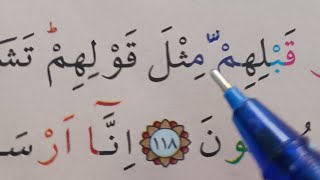 قَبْلِهِمْ مِّثْلَ قَوْلِهِمْ تَشَا
نَ ١١٨ اِنَّآ اَرْسَ